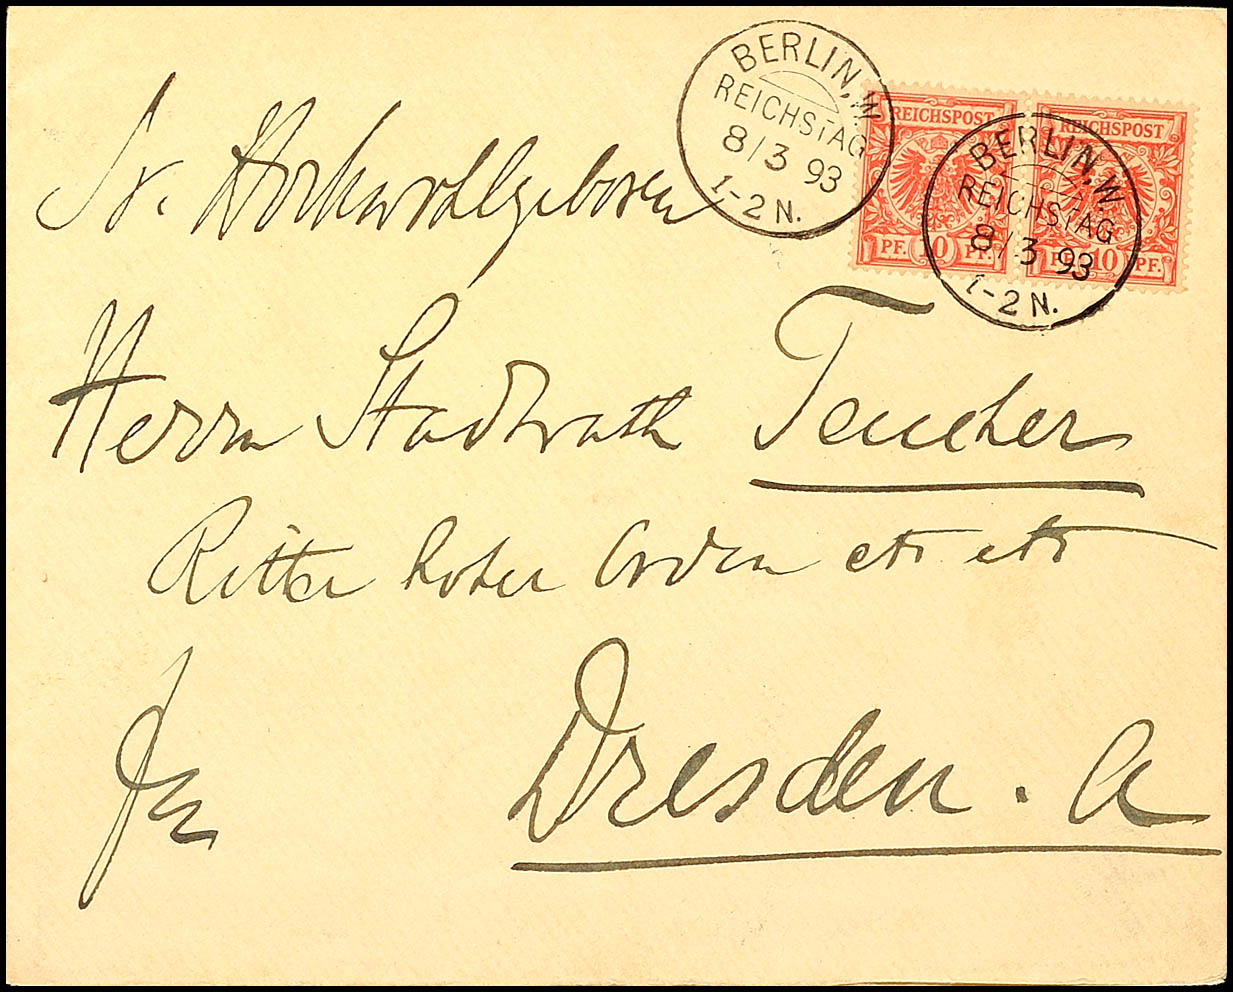 BERLIN, W.
REICHSTAG
8/3 93
1-2 N.
REICHSPOST
PF. 10 PF.
REICHSPOST
PF. 10 PF.
BERLIN, W.
REICHSTAG
8/3 93
1-2 N.
Sr. Hochwohlgeboren
Herrn Stadtrath Teucher
Ritter hoher Orden etc etc
In
Dresden. A